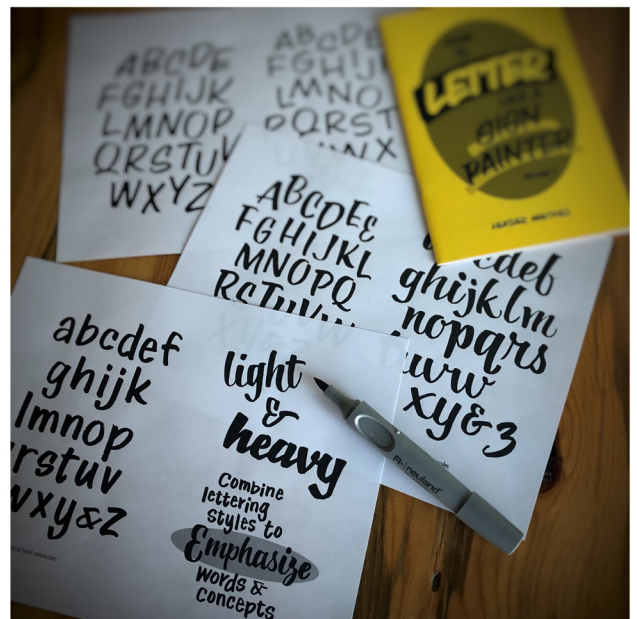 ABCDE
FGHIJK
LMNOP
QRSTUV
WXYZ
ABCDE
FGHIJ
LMNO
PQRST
LETTER
SIGN
PAINTER
ABCDEE
FGHIJKL
MNOPQ
RSTUVW
cdef
ghijklm
nopqrs
uvw
xy&3
abcdef
ghijk
lmnop
rstuv
wxy&z
light
&
heavy
Combine
lettering
styles to
Emphasize
words &
concepts
neuland